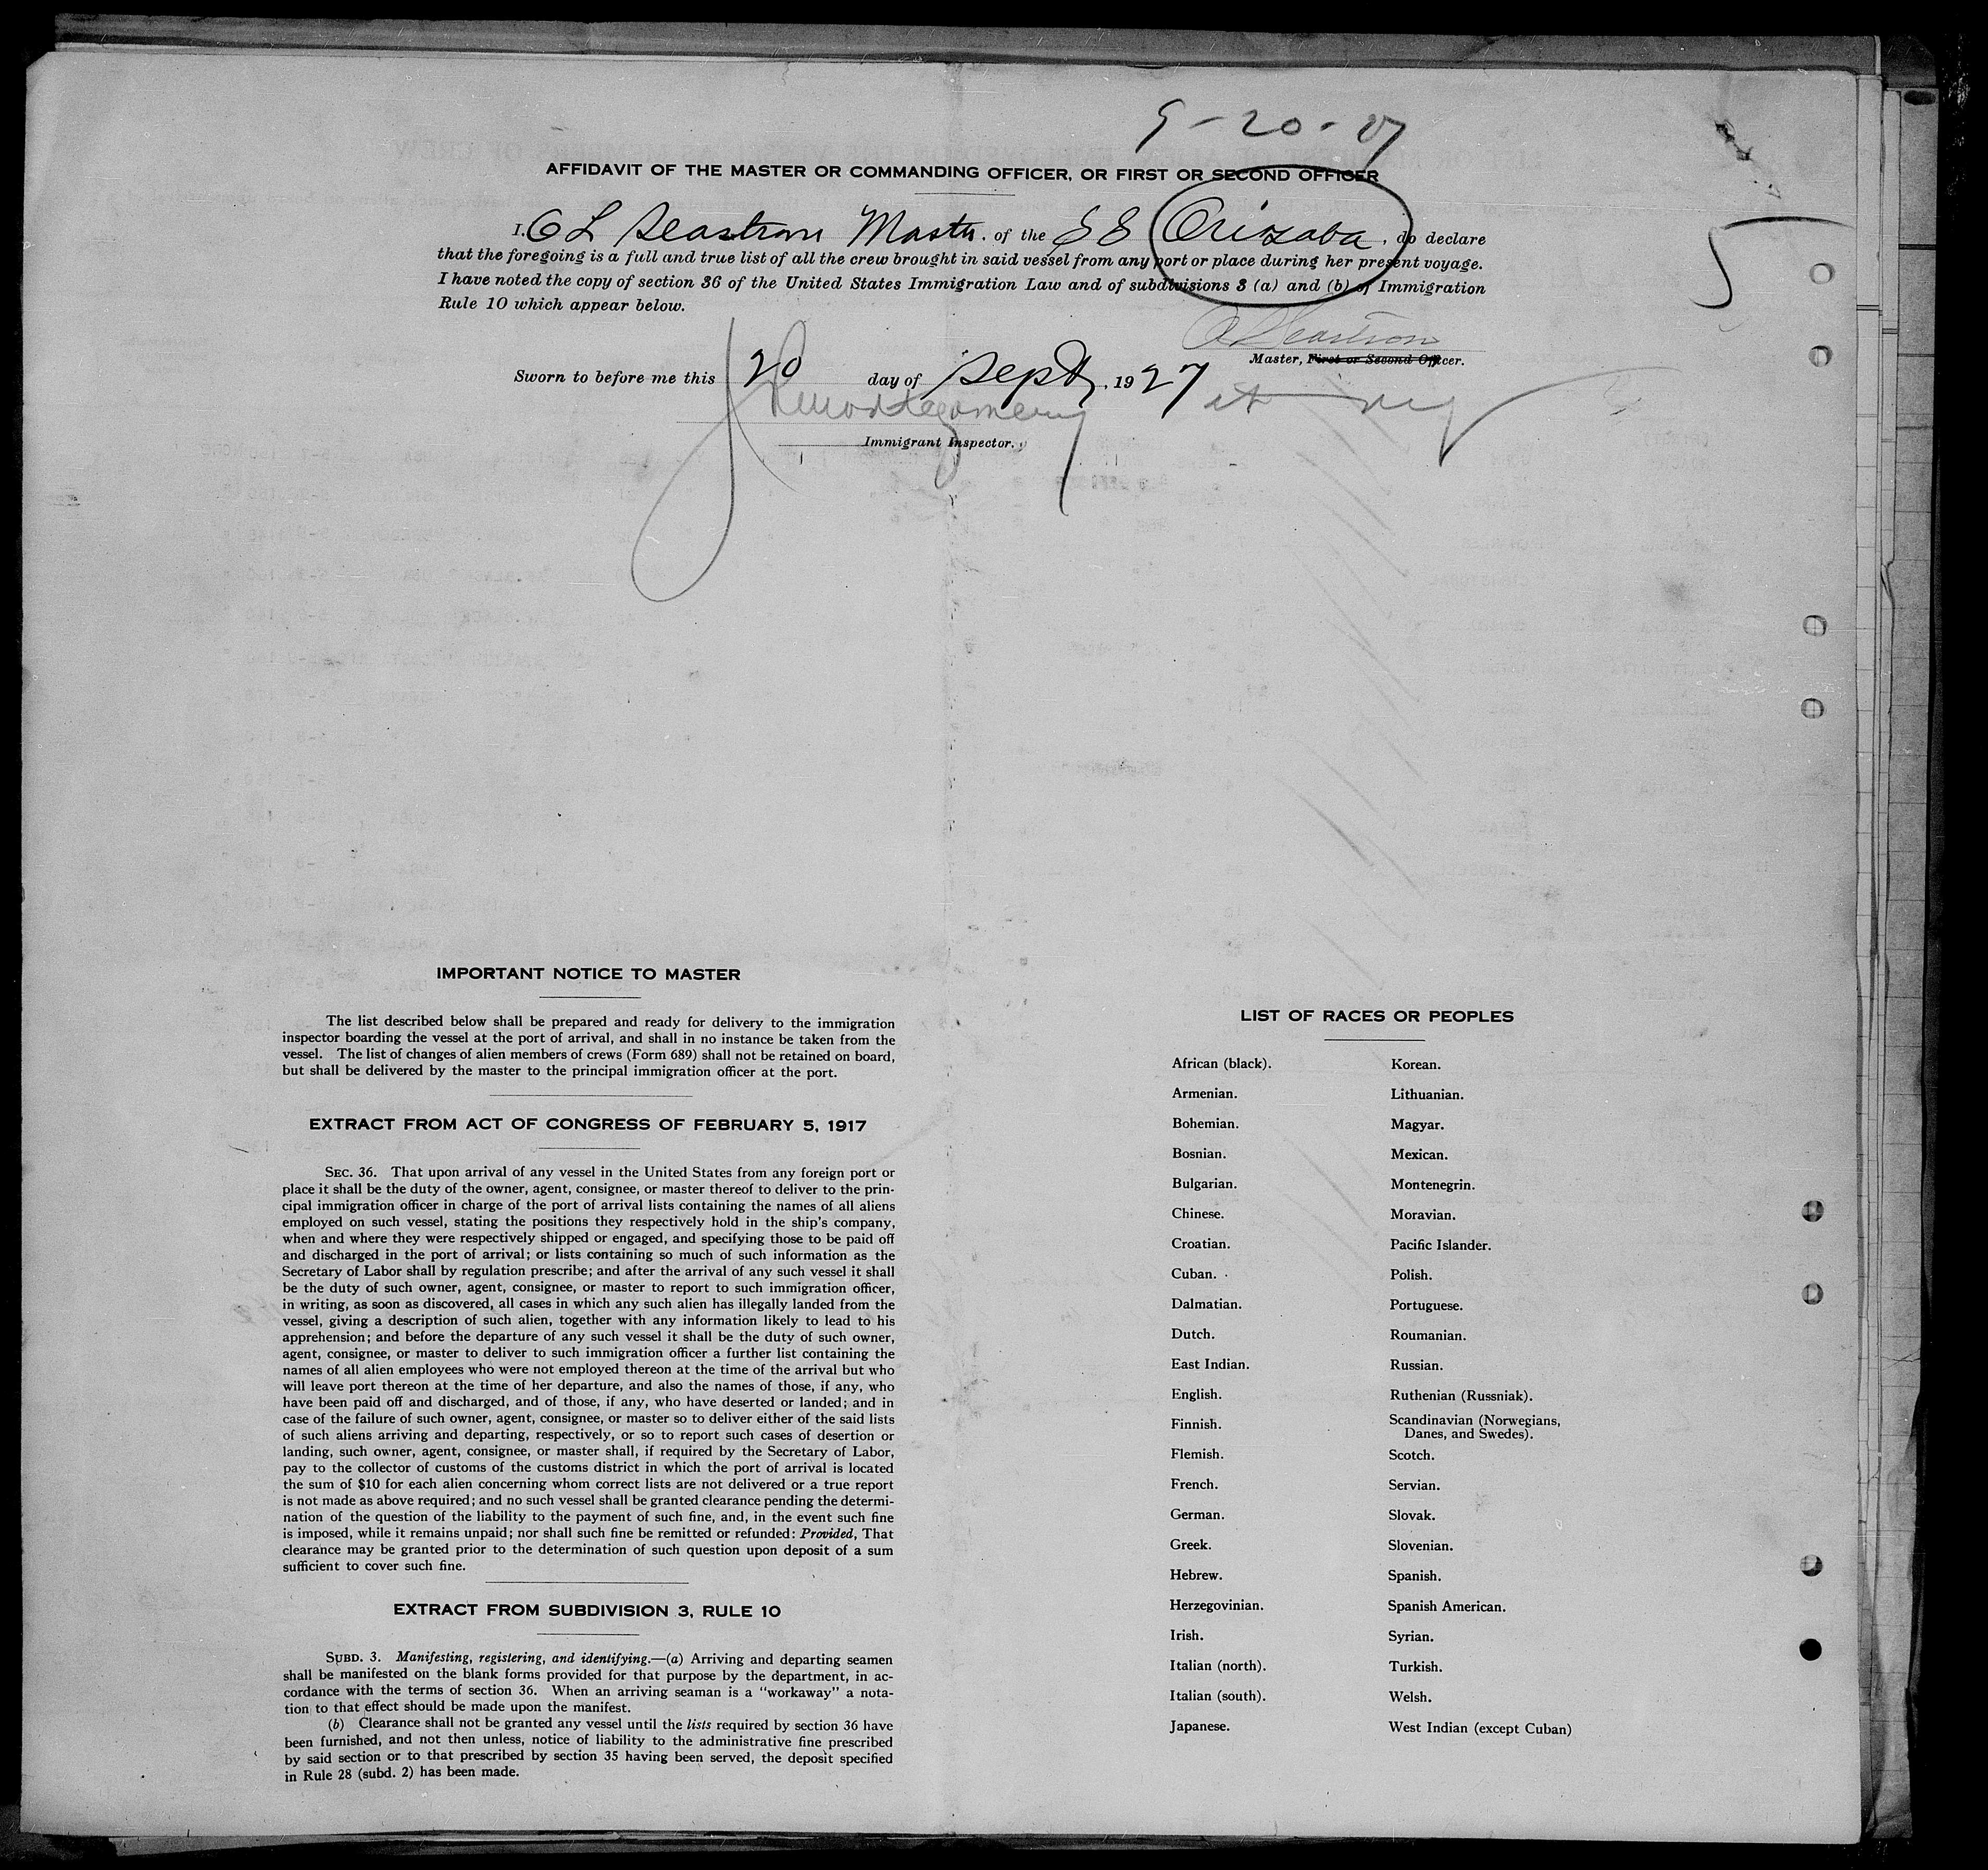 9-20-27
AFFIDAVIT OF THE MASTER OR COMMANDING OFFICER, OR FIRST OR SECOND OFFICER
5
I, O L Seastrom Master, of the SS Orizaba, do declare
that the foregoing is a full and true list of all the crew brought in said vessel from any port or place during her present voyage.
I have noted the copy of section 36 of the United States Immigration Law and of subdivisions 3 (a) and (b) of Immigration
Rule 10 which appear below.
Seastrom
Master, First or Second Officer.
Sworn to before me this 20 day of Sept, 1927 at
Montgomery
Immigrant Inspector.
IMPORTANT NOTICE TO MASTER
The list described below shall be prepared and ready for delivery to the immigration
inspector boarding the vessel at the port of arrival, and shall in no instance be taken from the
vessel. The list of changes of alien members of crews (Form 689) shall not be retained on board,
but shall be delivered by the master to the principal immigration officer at the port.
EXTRACT FROM ACT OF CONGRESS OF FEBRUARY 5, 1917
SEC. 36. That upon arrival of any vessel in the United States from any foreign port or
place it shall be the duty of the owner, agent, consignee, or master thereof to deliver to the prin-
cipal immigration officer in charge of the port of arrival lists containing the names of all aliens
employed on such vessel, stating the positions they respectively hold in the ship's company,
when and where they were respectively shipped or engaged, and specifying those to be paid off
and discharged in the port of arrival; or lists containing so much of such information as the
Secretary of Labor shall by regulation prescribe; and after the arrival of any such vessel it shall
be the duty of such owner, agent, consignee, or master to report to such immigration officer,
in writing, as soon as discovered, all cases in which any such alien has illegally landed from the
vessel, giving a description of such alien, together with any information likely to lead to his
apprehension; and before the departure of any such vessel it shall be the duty of such owner,
agent, consignee, or master to deliver to such immigration officer a further list containing the
names of all alien employees who were not employed thereon at the time of the arrival but who
will leave port thereon at the time of her departure, and also the names of those, if any, who
have been paid off and discharged, and of those, if any, who have deserted or landed; and in
case of the failure of such owner, agent, consignee, or master so to deliver either of the said lists
of such aliens arriving and departing, respectively, or so to report such cases of desertion or
landing, such owner, agent, consignee, or master shall, if required by the Secretary of Labor,
pay to the collector of customs of the customs district in which the port of arrival is located
the sum of $10 for each alien concerning whom correct lists are not delivered or a true report
is not made as above required; and no such vessel shall be granted clearance pending the determi-
nation of the question of the liability to the payment of such fine, and, in the event such fine
is imposed, while it remains unpaid; nor shall such fine be remitted or refunded: Provided, That
clearance may be granted prior to the determination of such question upon deposit of a sum
sufficient to cover such fine.
EXTRACT FROM SUBDIVISION 3, RULE 10
SUBD. 3. Manifesting, registering, and identifying.—(a) Arriving and departing seamen
shall be manifested on the blank forms provided for that purpose by the department, in ac-
cordance with the terms of section 36. When an arriving seaman is a "workaway" a nota-
tion to that effect should be made upon the manifest.
(b) Clearance shall not be granted any vessel until the lists required by section 36 have
been furnished, and not then unless, notice of liability to the administrative fine prescribed
by said section or to that prescribed by section 35 having been served, the deposit specified
in Rule 28 (subd. 2) has been made.
LIST OF RACES OR PEOPLES
African (black). Korean.
Armenian. Lithuanian.
Bohemian. Magyar.
Bosnian. Mexican.
Bulgarian. Montenegrin.
Chinese. Moravian.
Croatian. Pacific Islander.
Cuban. Polish.
Dalmatian. Portuguese.
Dutch. Roumanian.
East Indian. Russian.
English. Ruthenian (Russniak).
Finnish. Scandinavian (Norwegians,
Danes, and Swedes).
Flemish. Scotch.
French. Servian.
German. Slovak.
Greek. Slovenian.
Hebrew. Spanish.
Herzegovinian. Spanish American.
Irish. Syrian.
Italian (north). Turkish.
Italian (south). Welsh.
Japanese. West Indian (except Cuban)